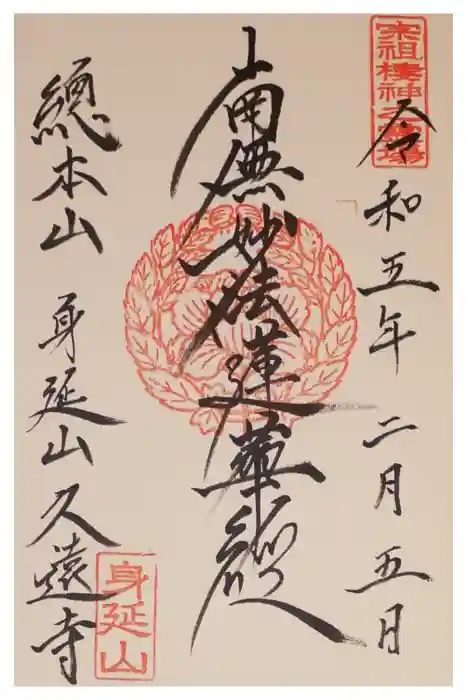 宗祖棲神之霊場
令和五年 二月五日
南無妙法蓮華経
總本山 身延山久遠寺
身延山